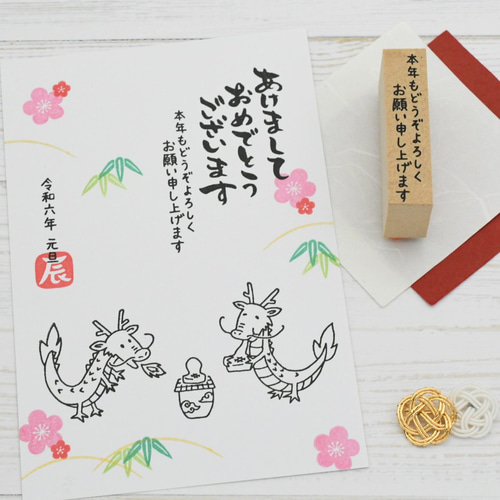 あけまして
おめでとう
ございます
本年もどうぞよろしく
お願い申し上げます
令和六年 元旦
辰
本年もどうぞよろしく
お願い申し上げます